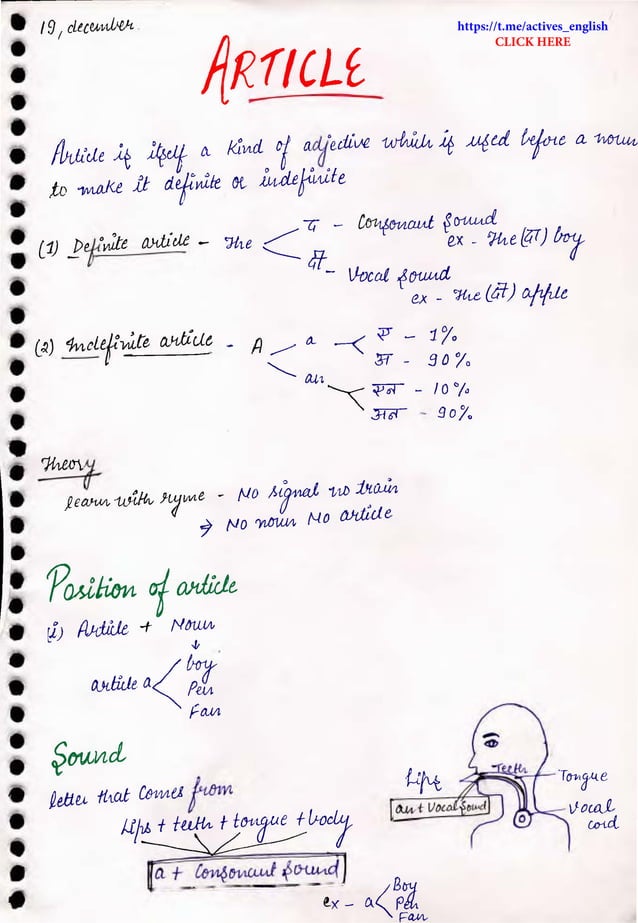 19, december.
https://t.me/actives_english
CLICK HERE
ARTICLE
Article is itself a kind of adjective which is used before a noun
to make it definite or indefinite
(1) Definite article - The
द - Consonant Sound
ex - The (दा) boy
दी - Vocal sound
ex - The (दी) apple
(2) Indefinite article - A
a
ए - 1%
अ - 90%
an
एन - 10%
अन - 90%
Theory
learn with ryme - No signal no train
⇒ No noun No article
Position of article
(i) Article + Noun
↓
article a
boy
Pen
Fan
Sound
letter that comes from
Lips + teeth + tongue + body
a + Consonant Sound
ex - a
Boy
Pen
Fan
Lips
Teeth
Tongue
an + Vocal Sound
Vocal
cord